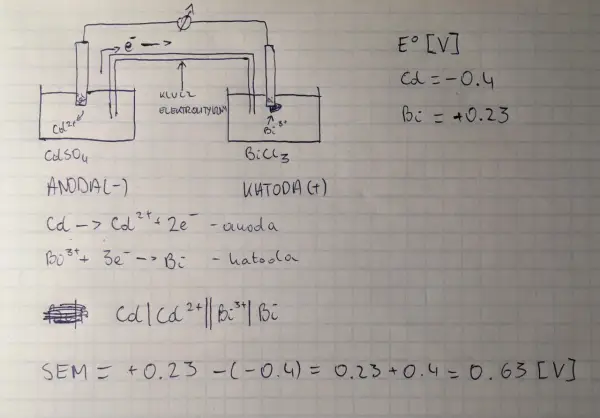 e⁻ →
E° [V]
Cd = -0.4
Bi = +0.23
KLUCZ
ELEKTROLITYCZNY
Cd²⁺
Bi³⁺
CdSO₄
BiCl₃
ANODA(-)
KATODA (+)
Cd -> Cd²⁺ + 2e⁻ - anoda
Bi³⁺ + 3e⁻ -> Bi - katoda
Cd|Cd²⁺||Bi³⁺|Bi
SEM = +0.23 -(-0.4) = 0.23 + 0.4 = 0.63 [V]